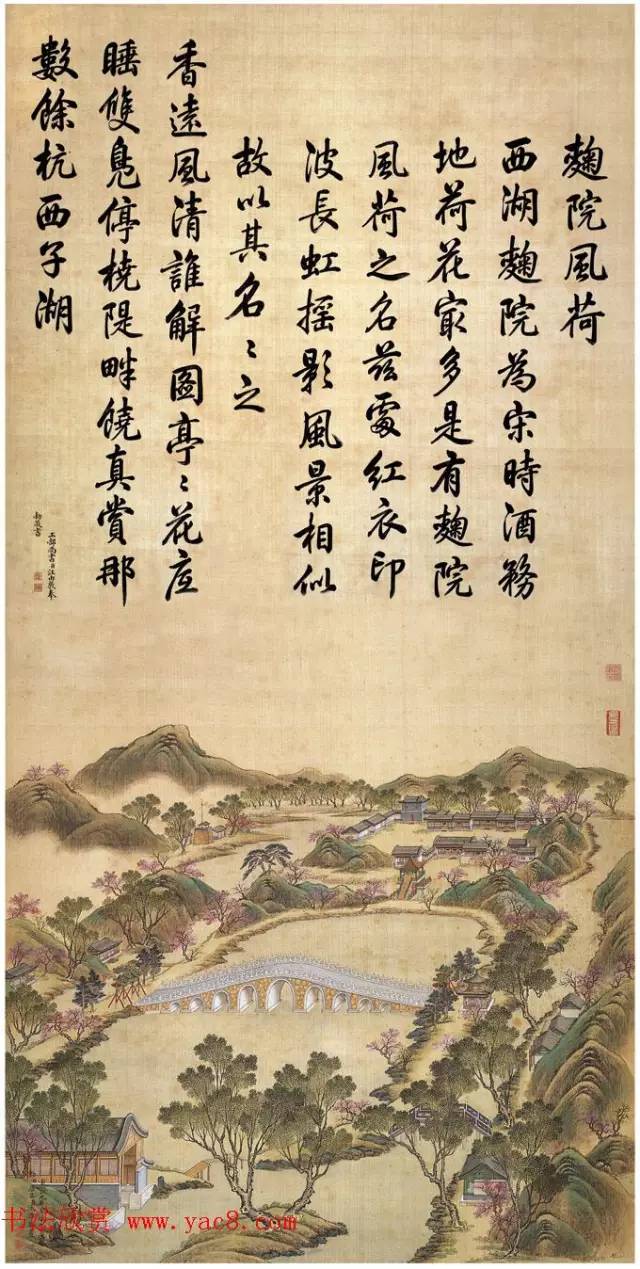 麴院風荷
西湖麴院為宋時酒務
地荷花冣多是有麴院
風荷之名茲處紅衣印
波長虹摇影風景相似
故以其名〻之
香遠風清誰解圖亭〻花底
睡雙鳧停橈隄畔饒真賞那
數餘杭西子湖
工部尚書臣汪由敦奉
勅敬書
书法欣赏 www.yac8.com